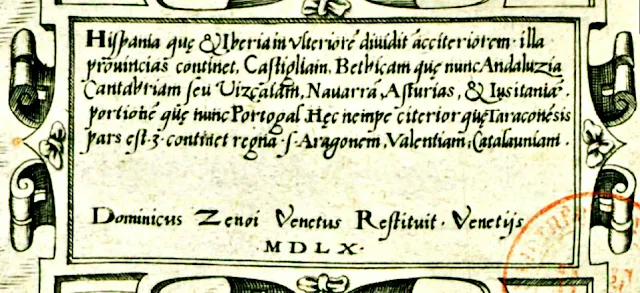 Hispania quę & Iberia in vlteriorē diuidit ac citeriorem · illa
prouincias continet, Castigliam, Bethicam quę nunc Andaluzia
Cantabriam seu Vizcaiam, Nauarra, Asturias, & Lusitaniæ
portionē quę nunc Portogal Hęc nempe citerior quę Taraconēsis
pars est · 3 · continet regna · s · Aragonem, Valentiam, Catalauniam ·
Dominicus Zenoi Venetus Restituit · Venetijs
· M D L X ·